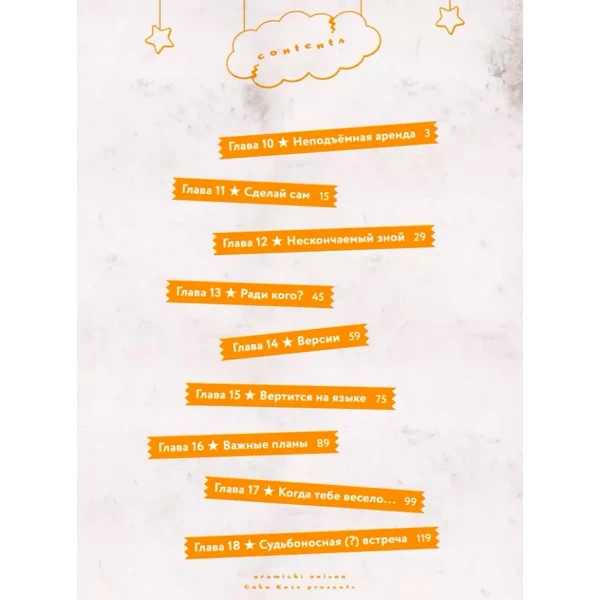 contents
Глава 10 ★ Неподъёмная аренда 3
Глава 11 ★ Сделай сам 15
Глава 12 ★ Нескончаемый зной 29
Глава 13 ★ Ради кого? 45
Глава 14 ★ Версии 59
Глава 15 ★ Вертится на языке 75
Глава 16 ★ Важные планы 89
Глава 17 ★ Когда тебе весело... 99
Глава 18 ★ Судьбоносная (?) встреча 119